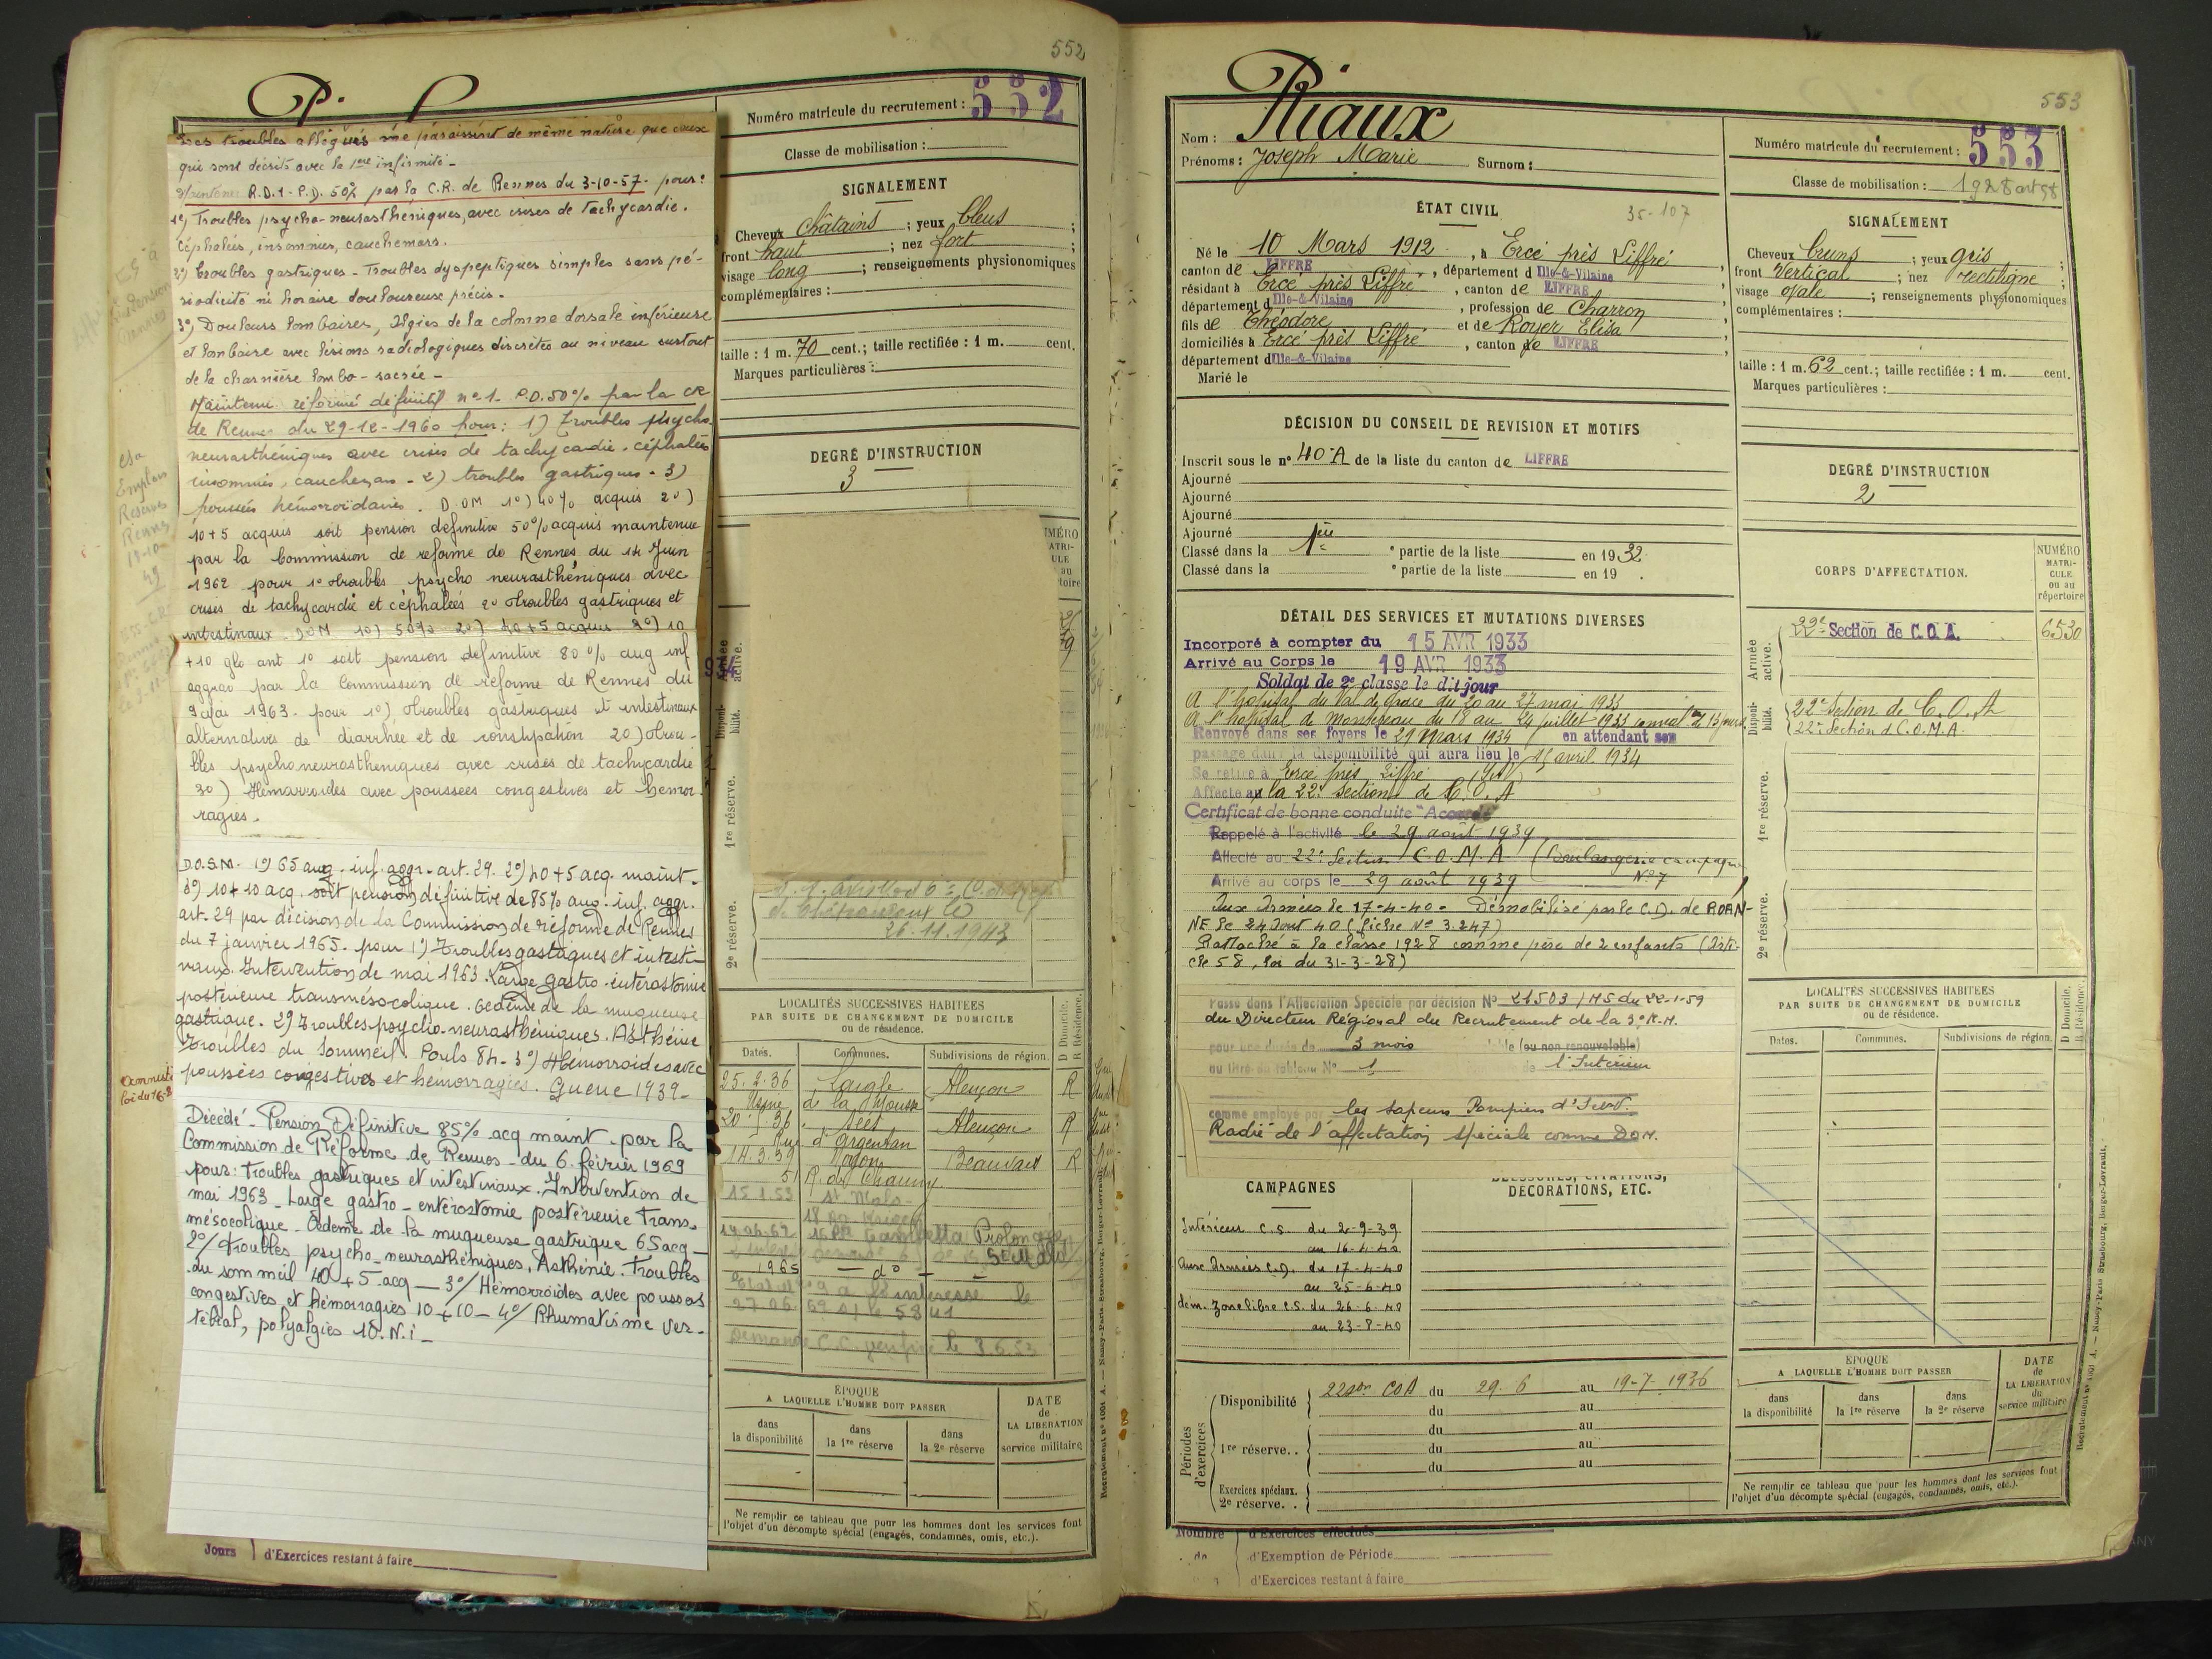 552
Numéro matricule du recrutement : 552
Classe de mobilisation :
SIGNALEMENT
Cheveux châtains ; yeux bleus ;
front haut ; nez fort ;
visage long ; renseignements physionomiques
complémentaires :
taille : 1 m. 70 cent.; taille rectifiée : 1 m. cent.
Marques particulières :
DEGRÉ D'INSTRUCTION
3
Les troubles allégués me paraissent de même nature que ceux
qui sont décrits avec la 1ère infirmité -
Maintenu R.D.1 - P.D. 50% par la C.R. de Rennes du 3-10-57 - pour :
1°) Troubles psycho-neurasthéniques, avec crises de tachycardie.
Céphalées, insomnies, cauchemars.
2°) Troubles gastriques - Troubles dyspeptiques simples sans pé-
riodicité ni horaire douloureuse précis -
3°) Douleurs lombaires, algies de la colonne dorsale inférieure
et lombaire avec lésions radiologiques discrètes au niveau surtout
de la charnière lombo-sacrée -
Maintenu réformé définitif n° 1 - P.D. 50% par la CR
de Rennes du 29-12-1960 pour : 1) Troubles psycho
neurasthéniques avec crises de tachycardie - céphalées
insomnies, cauchemars - 2) troubles gastriques - 3)
poussées hémorroïdaires. D.OM 1°) 40% acquis 2°)
10+5 acquis soit pension définitive 50% acquis maintenue
par la Commission de reforme de Rennes du 14 Juin
1962 pour 1° troubles psycho neurasthéniques avec
crises de tachycardie et céphalées 2° troubles gastriques et
intestinaux. DOM 1°) 50% 2°) 40+5 acquis 3°) 10
+10 glo ant 1° soit pension definitive 80% aug inf
aggrav par la Commission de réforme de Rennes du
9 Mai 1963 - pour 1°) troubles gastriques et intestinaux
alternatives de diarrhée et de constipation 2°) trou-
bles psychoneurastheniques avec crises de tachycardie
3°) Hémarroides avec poussées congestives et hémor-
ragies.
D.O.S.M. 1°) 65 aug. inf. aggr. art. 29. 2°) 40+5 acq. maint.
3°) 10+10 acq. soit pension définitive de 85% aug. inf. aggr.
art. 29 par décision de la Commission de réforme de Rennes
du 7 janvier 1965 - pour 1°) Troubles gastriques et intesti-
naux. Intervention de mai 1963 Large gastro-entérostomie
postérieure transmésocolique. Oedème de la muqueuse
gastrique. 2°) Troubles psycho-neurastheniques. Asthénie
Troubles du Sommeil. Pouls 84 - 3°) Hémorroïdes avec
poussées congestives et hémorragies. Guerre 1939 -
Décédé - Pension Définitive 85% acq maint - par la
Commission de Réforme de Rennes - du 6 février 1969
pour : Troubles gastriques et intestinaux. Intervention de
mai 1963 - Large gastro-entérostomie postérieure Trans-
mésocolique - Oedeme de la muqueuse gastrique 65 acq -
2°/ Troubles psycho-neurasthéniques, Asthénie. Troubles
du sommeil 40+5 acq - 3°/ Hémorroïdes avec poussées
congestives et hémorragies 10+10 - 4°/ Rhumatisme ver-
tébral, polyalgies 10. N.i -
Jours d'Exercices restant à faire
Armée active.
Disponibilité.
1re réserve.
2e réserve.
26.11.1943
LOCALITÉS SUCCESSIVES HABITÉES
PAR SUITE DE CHANGEMENT DE DOMICILE
ou de résidence.
D Domicile. R Résidence.
Dates. Communes. Subdivisions de région.
25.2.36 Laigle Alençon R
Usine de la
20 36 Sées Alençon R
Rue d'Argentan
14.3.39 Noyon Beauvais R
51 R. de Chauny
15.1.53 St Malo
Gambetta Prolongée
1965 - d° -
l'intéressé le
ÉPOQUE
A LAQUELLE L'HOMME DOIT PASSER
dans la disponibilité
dans la 1re réserve
dans la 2e réserve
DATE de LA LIBÉRATION du service militaire
Ne remplir ce tableau que pour les hommes dont les services font
l'objet d'un décompte spécial (engagés, condamnés, omis, etc.).
Recrutement n° 1001 A. — Nancy-Paris-Strasbourg, Berger-Levrault.
553
Nom : Riaux
Prénoms : Joseph Marie Surnom :
Numéro matricule du recrutement : 553
Classe de mobilisation : 1928 art 58
ÉTAT CIVIL
35-107
Né le 10 Mars 1912, à Ercé près Liffré
canton de LIFFRE, département d Ille-&-Vilaine
résidant à Ercé près Liffré, canton de LIFFRE
département d Ille-&-Vilaine, profession de Charron
fils de Théodore et de Royer Elisa
domiciliés à Ercé près Liffré, canton de LIFFRE
département d Ille-&-Vilaine
Marié le
DÉCISION DU CONSEIL DE REVISION ET MOTIFS
Inscrit sous le n° 40 A de la liste du canton de LIFFRE
Ajourné
Ajourné
Ajourné
Ajourné
Classé dans la 1ère partie de la liste en 1932
Classé dans la e partie de la liste en 19 .
DÉTAIL DES SERVICES ET MUTATIONS DIVERSES
Incorporé à compter du 15 AVR 1933
Arrivé au Corps le 19 AVR 1933
Soldat de 2e classe le dit jour
A l'hôpital du Val de Grace du 20 au 27 mai 1933
A l'hôpital de Montereau du 18 au 24 juillet 1933 convalce 15 jours
Renvoyé dans ses foyers le 29 Mars 1934 en attendant son
passage dans la disponibilité qui aura lieu le 15 avril 1934
Se retire à Ercé près Liffré (I&V)
Affecté à la 22e Section de C.O.A
Certificat de bonne conduite "Accordé"
Rappelé à l'activité le 29 août 1939
Affecté au 22e Section C.O.M.A (Boulangerie campagne
Arrivé au corps le 29 août 1939 N°7
Aux Armées le 17-4-40. Démobilisé par le C.D. de ROAN-
NE le 24 Aout 40 (fiche N° 3.247)
Rattaché à la classe 1928 comme père de 2 enfants (Arti-
cle 58, loi du 31-3-28)
Passé dans l'Affectation Spéciale par décision N° 21503/MS du 22-1-59
du Directeur Régional du Recrutement de la 3e R.M.
pour une durée de 3 mois (ou non renouvelable)
au titre du tableau N° 1 de l'Intérieur
comme employé par les Sapeurs Pompiers d'I-et-V.
Radié de l'affectation spéciale comme DOM.
CAMPAGNES
Intérieur C.S. du 2-9-39
au 16-4-40
Aux Armées C.D. du 17-4-40
au 25-6-40
dém. Zone libre C.S. du 26-6-40
au 23-8-40
BLESSURES, CITATIONS,
DÉCORATIONS, ETC.
Périodes d'exercices
Disponibilité 22 son COA du 29.6 au 19-7-1936
du au
du au
1re réserve.. du au
du au
Exercices spéciaux.
2e réserve..
Nombre d'Exercices effectués
de d'Exemption de Période
d'Exercices restant à faire
SIGNALEMENT
Cheveux bruns ; yeux gris ;
front Vertical ; nez rectiligne ;
visage ovale ; renseignements physionomiques
complémentaires :
taille : 1 m. 62 cent.; taille rectifiée : 1 m. cent.
Marques particulières :
DEGRÉ D'INSTRUCTION
2
CORPS D'AFFECTATION.
NUMÉRO MATRICULE ou au répertoire
Armée active.
22e Section de C.O.A. 6530
Disponibilité.
22e Section de C.O.A
22e Section d C.O.M.A.
1re réserve.
2e réserve.
LOCALITÉS SUCCESSIVES HABITÉES
PAR SUITE DE CHANGEMENT DE DOMICILE
ou de résidence.
D Domicile. R Résidence.
Dates. Communes. Subdivisions de région.
ÉPOQUE
A LAQUELLE L'HOMME DOIT PASSER
dans la disponibilité
dans la 1re réserve
dans la 2e réserve
DATE de LA LIBÉRATION du service militaire
Ne remplir ce tableau que pour les hommes dont les services font
l'objet d'un décompte spécial (engagés, condamnés, omis, etc.).
Recrutement n° 1001 A. — Nancy-Paris Strasbourg, Berger-Levrault.